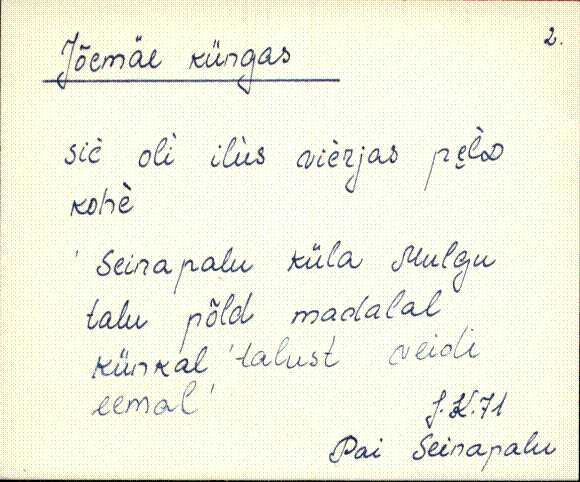 2.
Jõemäe küngas
siè oli ilùs vièrjas pe̬lᴅ
kohè
' Seinapalu küla Mulgu
talu põld madalal
künkal 'talust veidi
eemal'
J.K.71
Pai Seinapalu